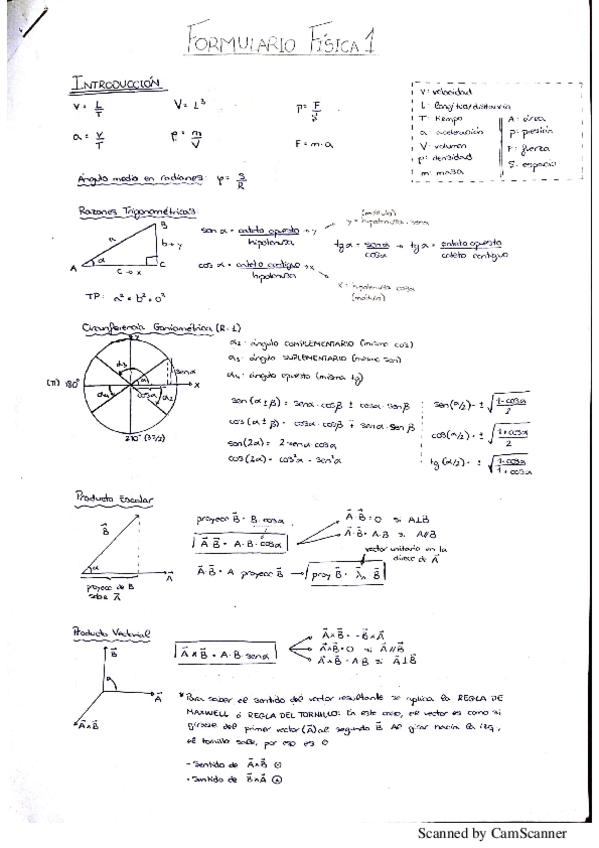 FORMULARIO FÍSICA 1
INTRODUCCIÓN
v = L/T
V = L³
p = F/
a = v/T
ρ = m/V
F = m·a
v: velocidad
L: longitud/distancia
T: tiempo
a: aceleración
V: volumen
ρ: densidad
m: masa
A: área
p: presión
F: fuerza
S: espacio
Ángulo medio en radianes: φ = S/R
Razones Trigonométricas
sen α = cateto opuesto / hipotenusa → y
(módulo)
y = hipotenusa · sen α
cos α = cateto contiguo / hipotenusa → x
x = hipotenusa · cos α
(módulo)
tg α = sen α / cos α → tg α = cateto opuesto / cateto contiguo
A
B
C
a
α
b → y
c → x
TP: a² = b² + c²
Circunferencia Goniométrica (R=1)
α₂: ángulo COMPLEMENTARIO (mismo cos)
α₃: ángulo SUPLEMENTARIO (mismo sen)
α₄: ángulo opuesto (misma tg)
(π) 180°
sen α
cos α
x
sen(α ± β) = sen α · cos β ± cos α · sen β
cos(α ± β) = cos α · cos β ∓ sen α · sen β
sen(2α) = 2 · sen α · cos α
cos(2α) = cos²α - sen²α
sen(α/2) = ± √((1 - cos α)/2)
cos(α/2) = ± √((1 + cos α)/2)
tg(α/2) = ± √((1 - cos α)/(1 + cos α))
Producto Escalar
B
α
A
proyecc de B
sobre A
proyecc B = B · cos α
A · B = A · B · cos α
A · B = 0 si A⊥B
A · B = A · B si A//B
vector unitario en la
direcc de A
A · B = A · proyecc B →
Producto Vectorial
B
A
A∧B
A∧B = A · B · sen α
A∧B = -B∧A
A∧B = 0 si A//B
A∧B = A·B si A⊥B
* Para saber el sentido del vector resultante se aplica la REGLA DE
MAXWELL ó REGLA DEL TORNILLO: En este caso, el vector es como si
girase del primer vector (A) al segundo B. Al girar hacia la izq,
el tornillo sale, por eso es ⊙
- Sentido de A∧B ⊙
- Sentido de B∧A
Scanned by CamScanner